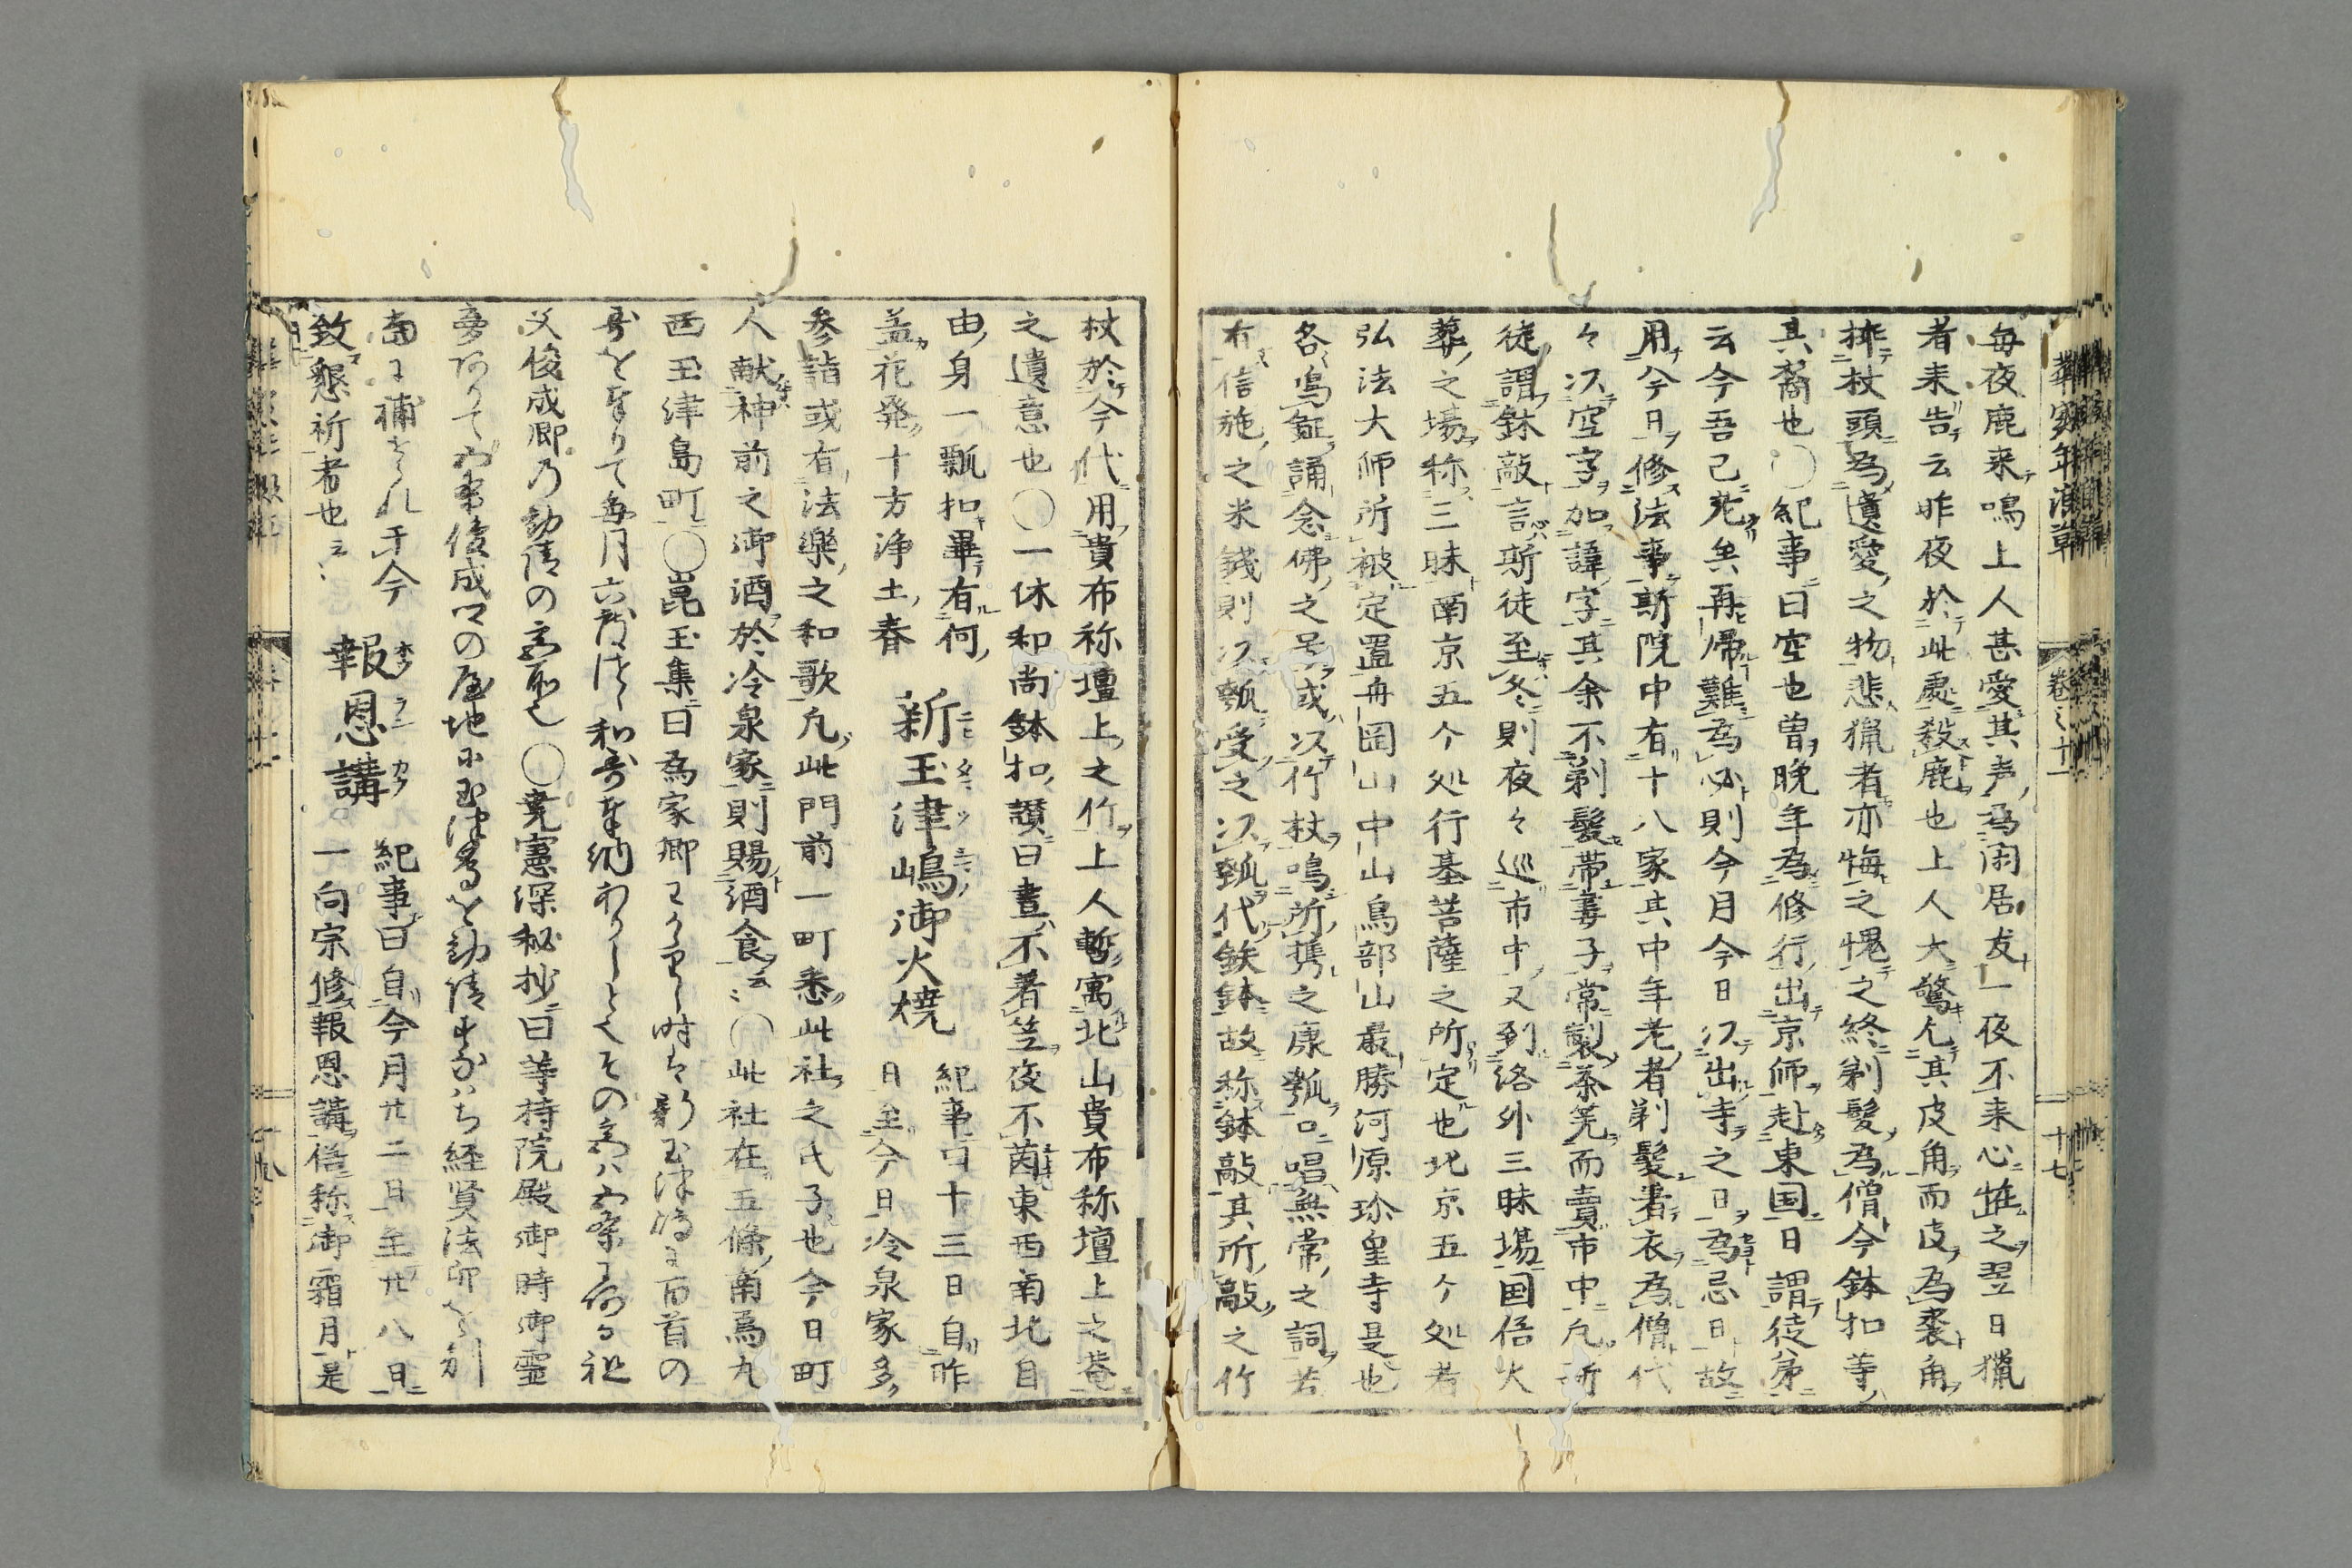 毎夜鹿来鳴上人甚愛其声為閑居友一夜不来心恠之翌日猟
者来告云昨夜於此処殺鹿也上人大驚乞其皮角而皮為裘角
挿杖頭為遺愛之物悲猟者亦悔之愧之終剃髪為僧今鉢扣等
其裔也〇紀事曰空也曽晩年為修行出京師赴東国日謂徒弟
云今吾已老矣再帰難為必則今月今日以出寺之日為忌日故
用今日修法事斯院中有十八家其中年老者剃髪著衣為僧代
々以空字加諱字其余不剃髪帯妻子常製茶筅而賣市中凡斯
徒謂鉢敲言斯徒至冬則夜々巡市中又到洛外三昧場国俗火
葬之場称三昧南京五个処行基菩薩之所定也北京五ケ処者
弘法大師所被定置舟岡山中山鳥部山最勝河原珍皇寺是也
各鳴鉦誦念佛之号或以竹杖鳴所携之瓢口唱無常之詞若
有信施之米銭則以瓢受之以瓢代鉄鉢故称鉢敲其所敲之竹
華實年浪草
巻之十一
十七
杖於今代用貴布祢壇上之竹上人暫寓北山貴布祢壇上之菴
之遺意也〇一休和尚鉢扣讃曰晝不著笠夜不茵東西南北自
由身一瓢扣畢有何
益花発十方浄土春
新玉津嶋御火焼
ニヒタマツシマノ
紀事曰十三日自昨
日至今日冷泉家多
参詣或有法樂之和歌凡此門前一町悉此社之氏子也今日町
人献神前之御酒於冷泉家則賜酒食云々〇此社在五條南烏丸
西玉津島町〇崑玉集曰為家卿
時は新玉津嶋に百首の
哥を
て毎月六首づゝ和哥を納
祖
父俊成卿の勧請の
〇堯憲深秘抄曰等持院殿御時御霊
夢ありて
俊成
の屋地に玉津嶋を勧請
経賢法印を別
當に補せられ于今
致懇祈者也云々
報恩講
ホウヲンカウ
紀事曰自今月廿二日至廿八日
一向宗修報恩講俗称御霜月是